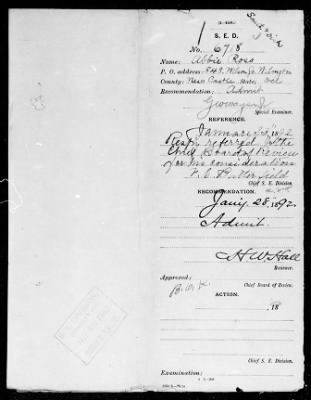 S. E. D.
No. 678
Name: Abbie Ross
P. O. address: 849 Wilson St Wilmington
County: New Castle State: Del
Recommendation: Admit
Special Examiner.
REFERENCE.
January 1892
Resp'y referred to the
Chief Board of Review
for his consideration
Chief S. E. Division.
RECOMMENDATION.
Jan'y 28, 1892
Admit
H W Hall
Reviewer.
Approved:
Chief Board of Review.
ACTION.
18
Chief S. E. Division.
Examination: